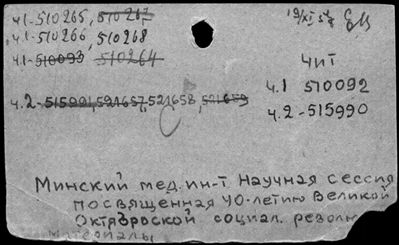 ч.1-510265, 510267
ч.1-510266, 510268
ч.1-510093 510264
19/XI 57
ЧИТ
ч.1 510092
ч.2-515990
ч.2-515991, 521657, 521658, 521659
Минский мед. ин-т Научная сессия
посвященная 40-летию Великой
Октябрьской социал. револю
материалы